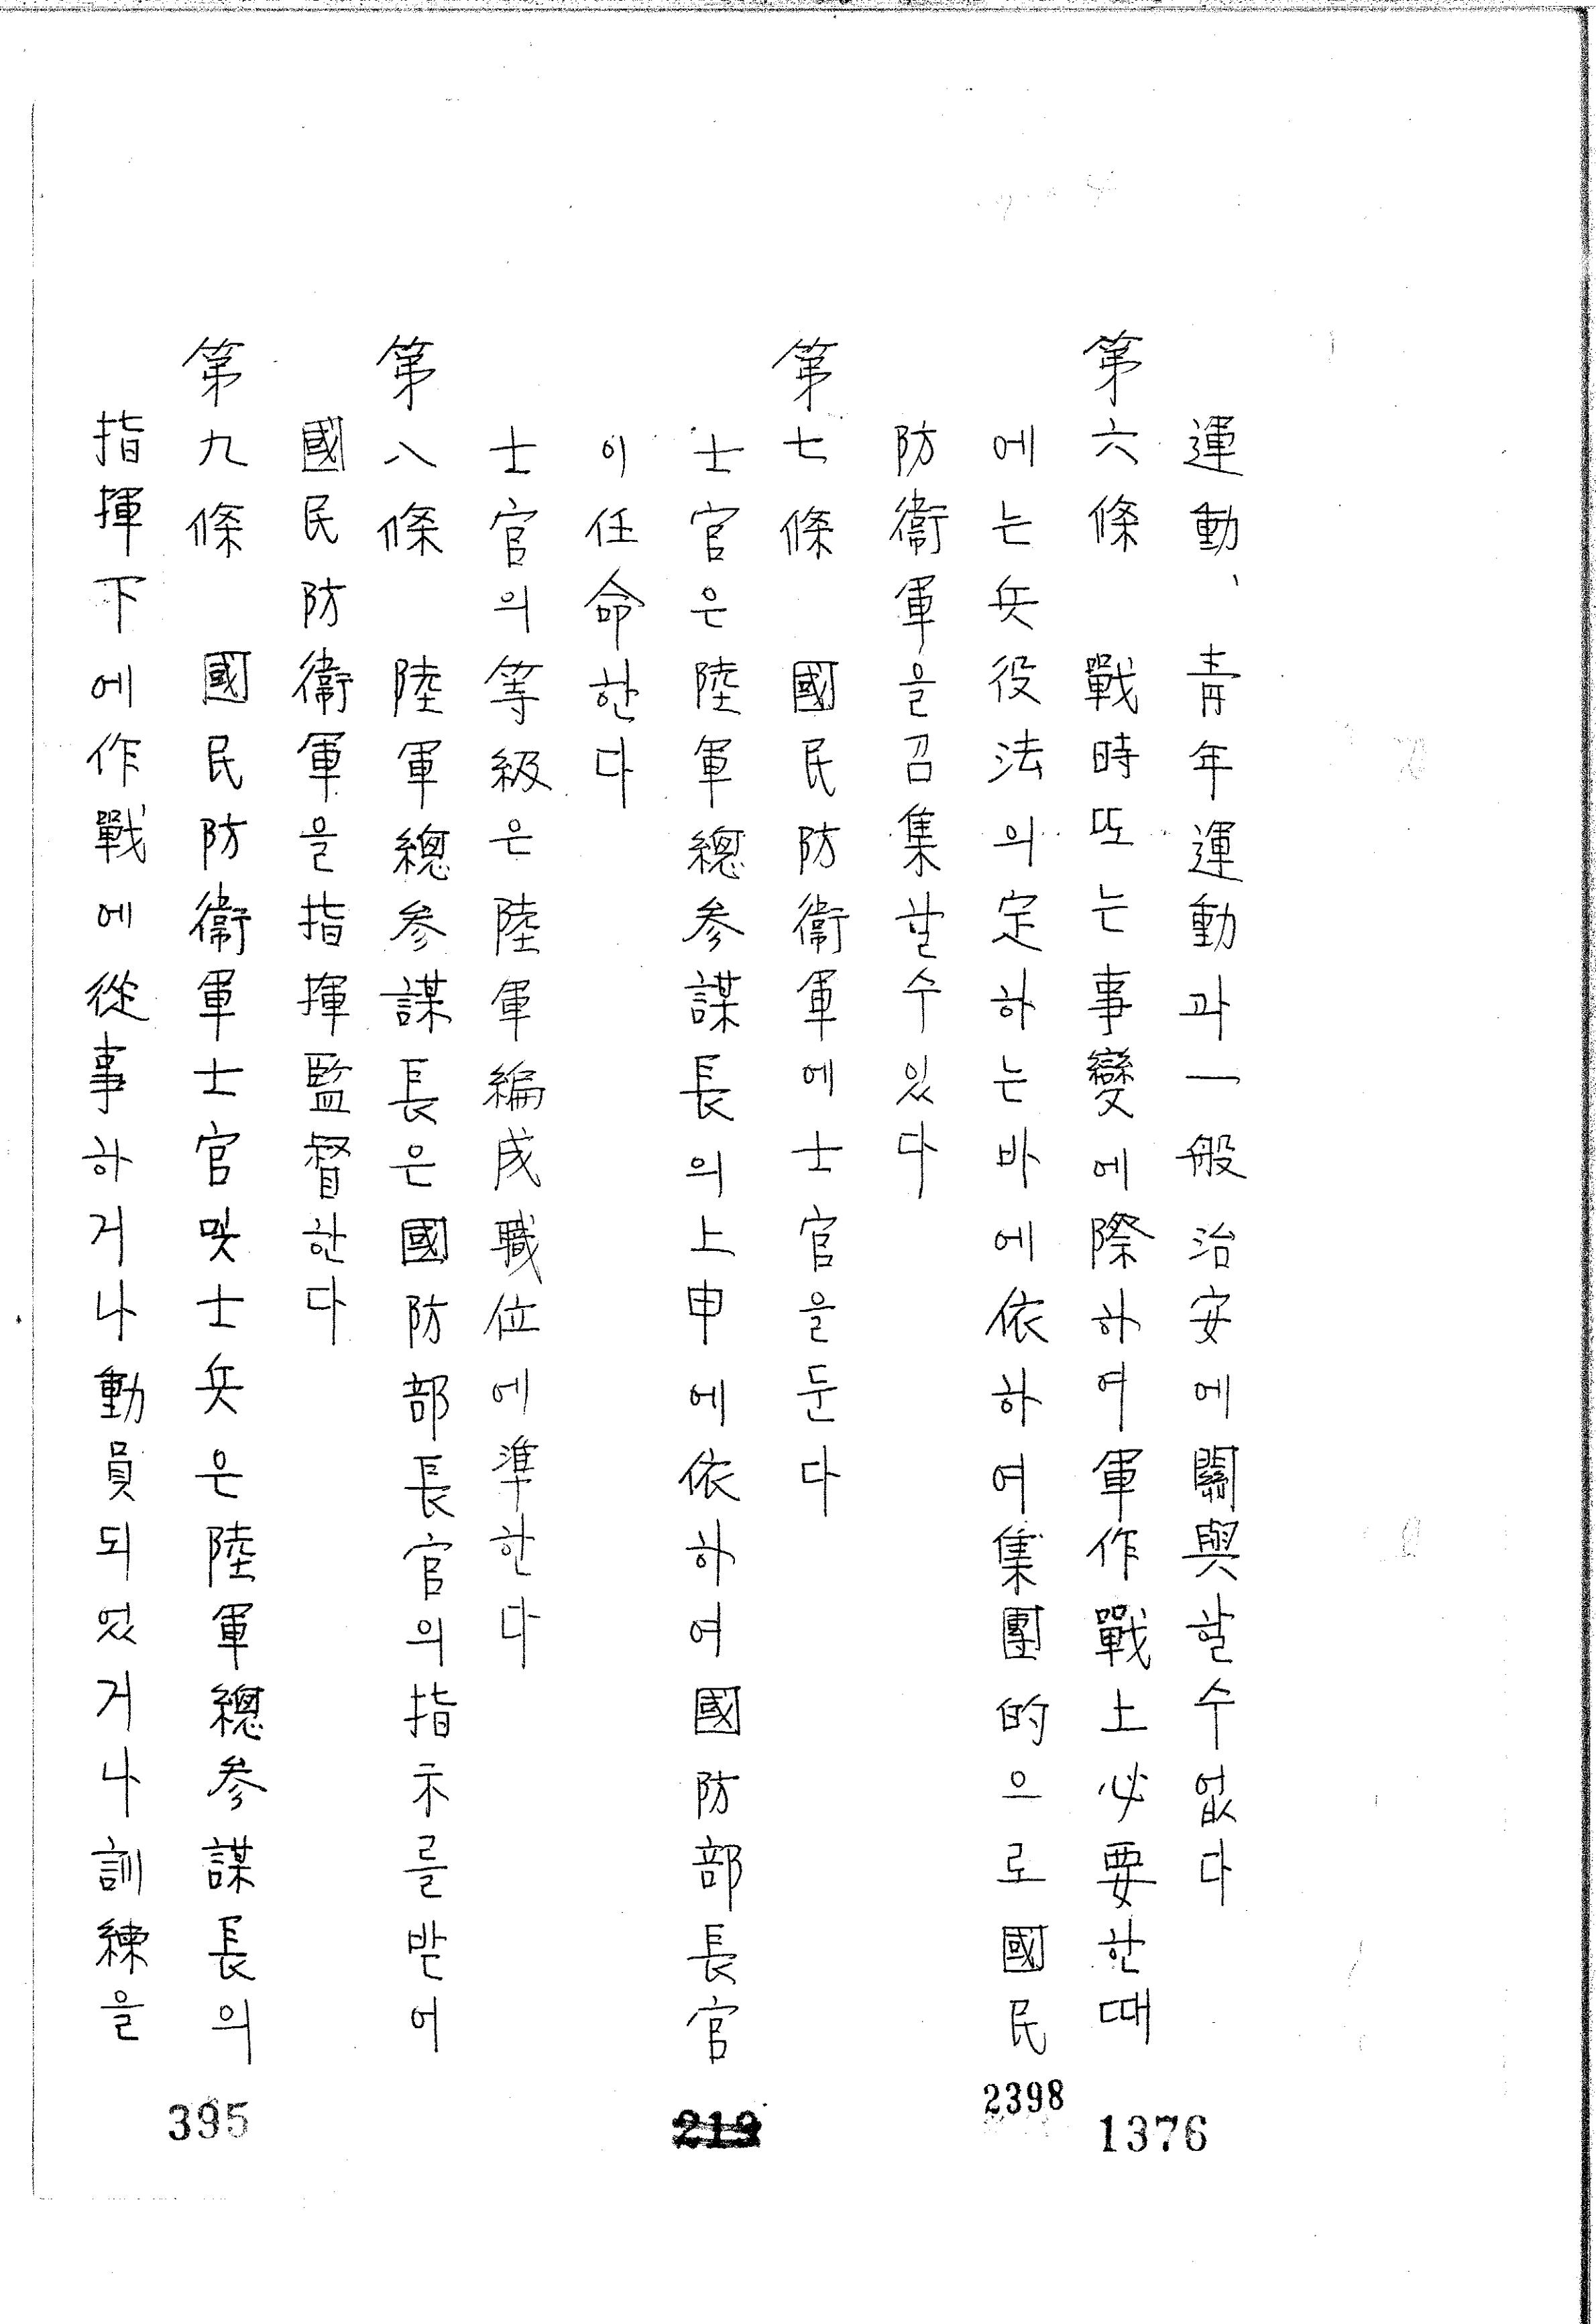 運動、靑年運動과一般治安에關與할수없다
第六條 戰時또는事變에際하여軍作戰上必要한때
에는兵役法의定하는바에依하여集團的으로國民
防衛軍을召集할수있다
第七條 國民防衛軍에士官을둔다
士官은陸軍總參謀長의上申에依하여國防部長官
이任命한다
士官의等級은陸軍編成職位에準한다
第八條 陸軍總參謀長은國防部長官의指示를받어
國民防衛軍을指揮監督한다
第九條 國民防衛軍士官및士兵은陸軍總參謀長의
指揮下에作戰에從事하거나動員되었거나訓練을
1376
2398
219
395